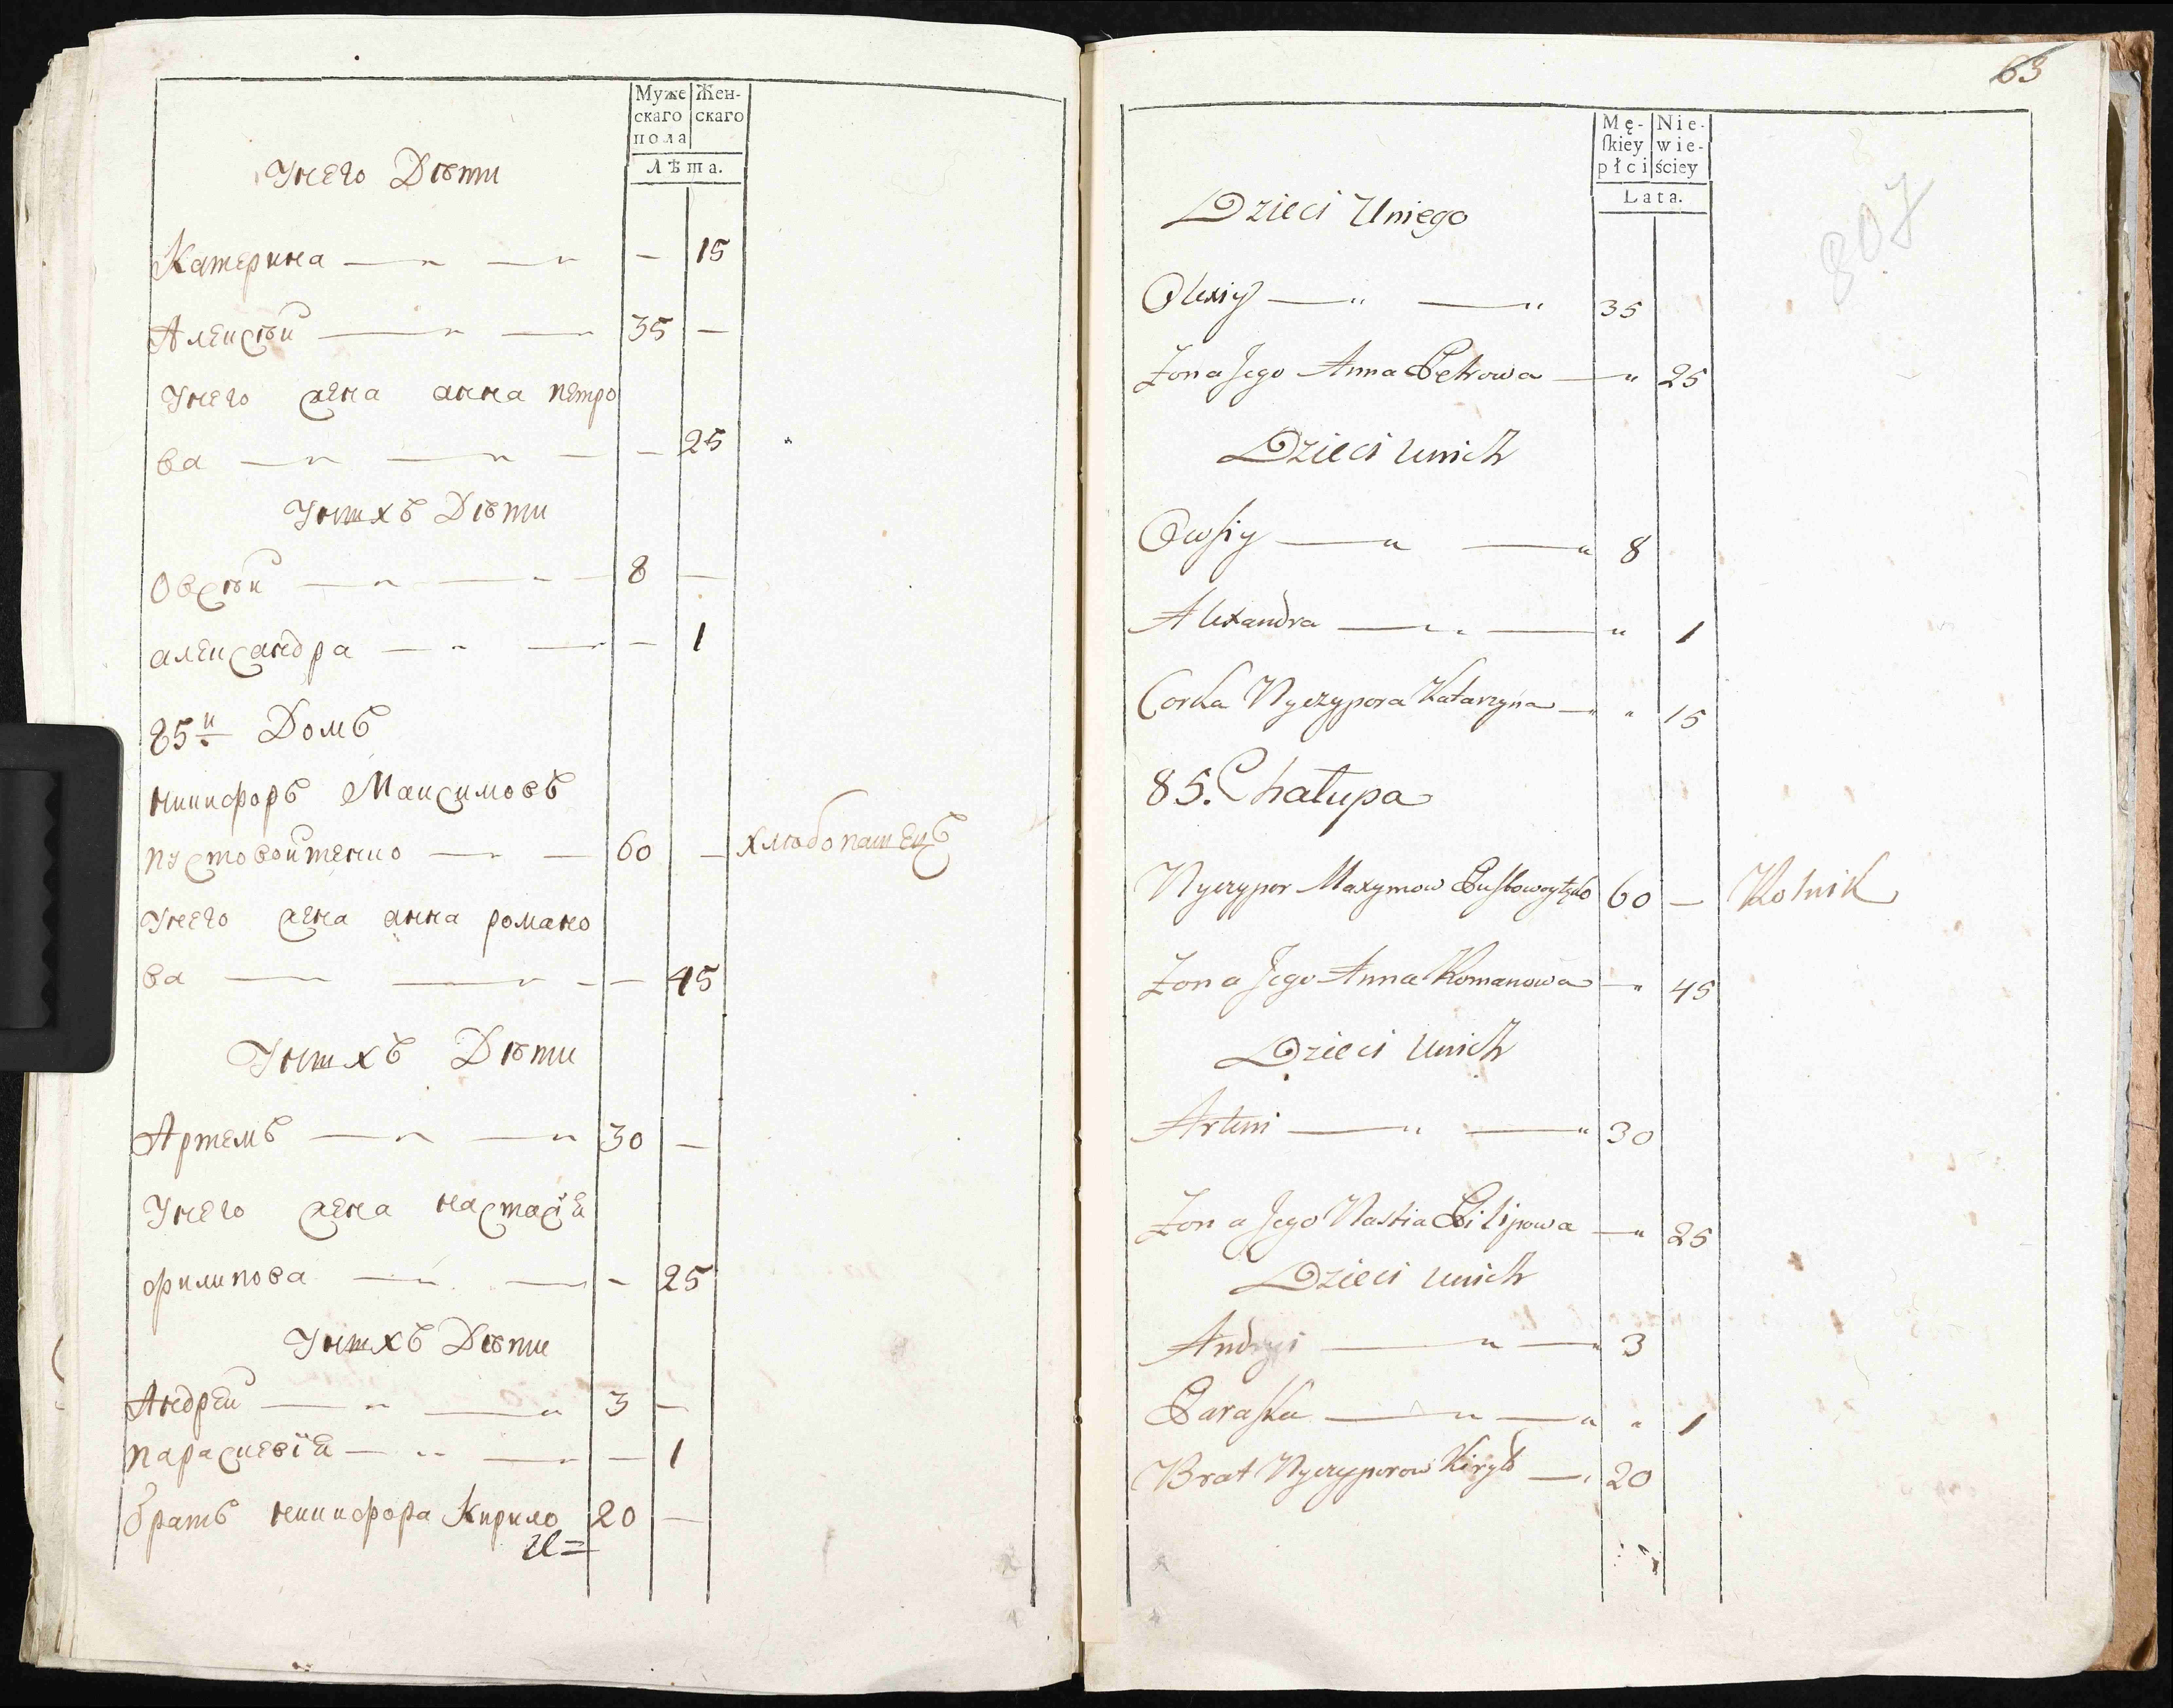 Муже
скаго
пола
Жен-
скаго
Лѣта.
Унего Дѣти
Катерина — — — 15
Алексѣй — — 35 —
Унего жена анна петро
ва — — — — 25
Унихъ Дѣти
Овсѣй — — 8 —
александра — — — 1
85й Домъ
никифоръ Максимовъ
пустовойтенко — — 60 — хлѣбопашецъ
Унего жена анна романо
ва — — — — 45
Унихъ Дѣти
Артемъ — — 30 —
Унего жена настасїя
филипова — — - 25
Унихъ Дѣти
Андрей — — 3 —
параскевїя — — — 1
братъ никифора Кирило 20 —
И=
63
Mę-
skiey
płci
Nie-
wie-
ściey
Lata.
807
Dzieci Uniego
Olexiy — — 35
Zona Jego Anna Petrowa — 25
Dzieci Unich
Owsiy — — 8
Alexandra — — " 1
Corka Nyczypora Katarzyna — " 15
85. Chałupa
Nyczypor Maxymow Pustowoytęko 60 — Rolnik
Zona Jego Anna Romanowa — 45
Dzieci Unich
Artem — — 30
Zona Jego Nastia Filipowa — 25
Dzieci Unich
Andryi — — 3
Paraska — — " 1
Brat Nyczyporow Kiryło — 20